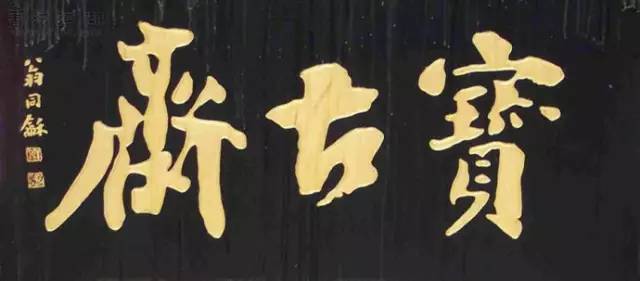 寶古齋
翁同龢